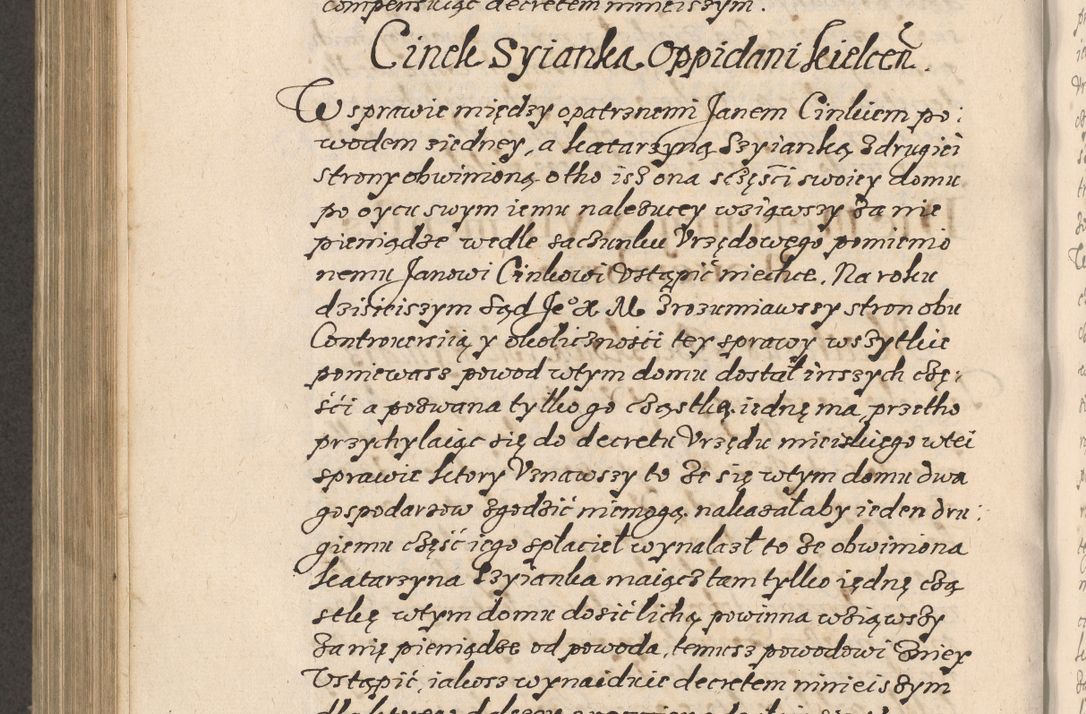 compensuiąc decretem ninieiszym.
Cinek Syianka Oppidani kielceń.
W sprawie między opatrznemi Janem Cinkiem po:
wodem ziedney, a katarzyną Szyianką z drugiei
strony obwinioną o tho isz ona sczęści swoiey domu
po oycu swym iemu należącey wziąwszy za nie
pieniądze wedle szachunku Vrzędowego pomienio
nemu Janowi Cinkowi Vstąpić niechce. Na roku
dzisieiszym Sąd Je° X M zrozumiawszy stron obu
Controuersiią y okoliczności tey sprawy wszytkie
poniewasz powod wtym domu dostał inszych czę:
ści a pozwana tylko go cząstkę iednę ma, przetho
przychylaiąc się do decretu Vrzędu mieiskiego wtei
sprawie ktory Vznawszy to że się wtym domu dwa
gospodarzow zgodzić niemogą, nakazał aby ieden dru:
giemu część iego spłacieł wynalazł to że obwiniona
katarzyna Szyianka maiącz tam tylko iędnę czą
stkę wtym domu dosić lichą powinna wziąwszy
za nię pieniądze od powoda, temusz powodowi zniey
Vstąpić, iakosz wynaiduie decretem ninieiszym